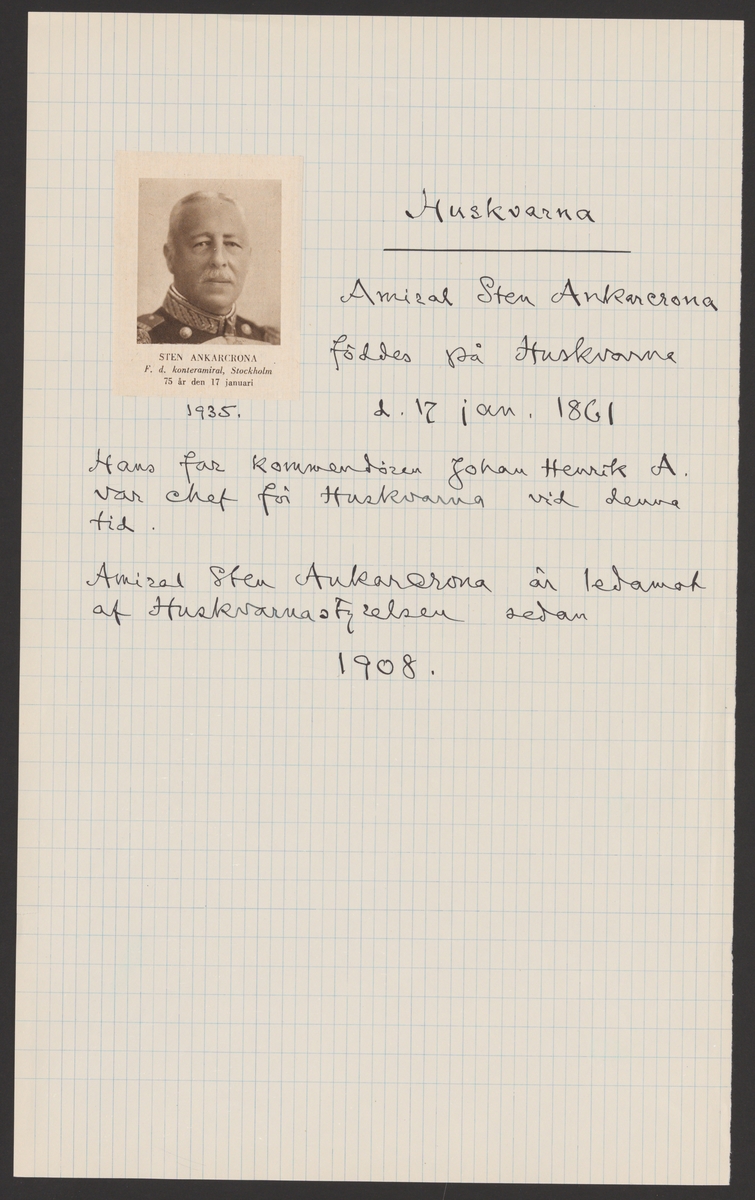 Huskvarna
STEN ANKARCRONA
F. d. konteramiral, Stockholm
75 år den 17 januari
1935.
Amiral Sten Ankarcrona
föddes på Huskvarna
d. 17 jan. 1861
Hans far kommendören Johan Henrik A.
var chef för Huskvarna vid denna
tid.
Amiral Sten Ankarcrona är ledamot
af Huskvarnastyrelsen sedan
1908.